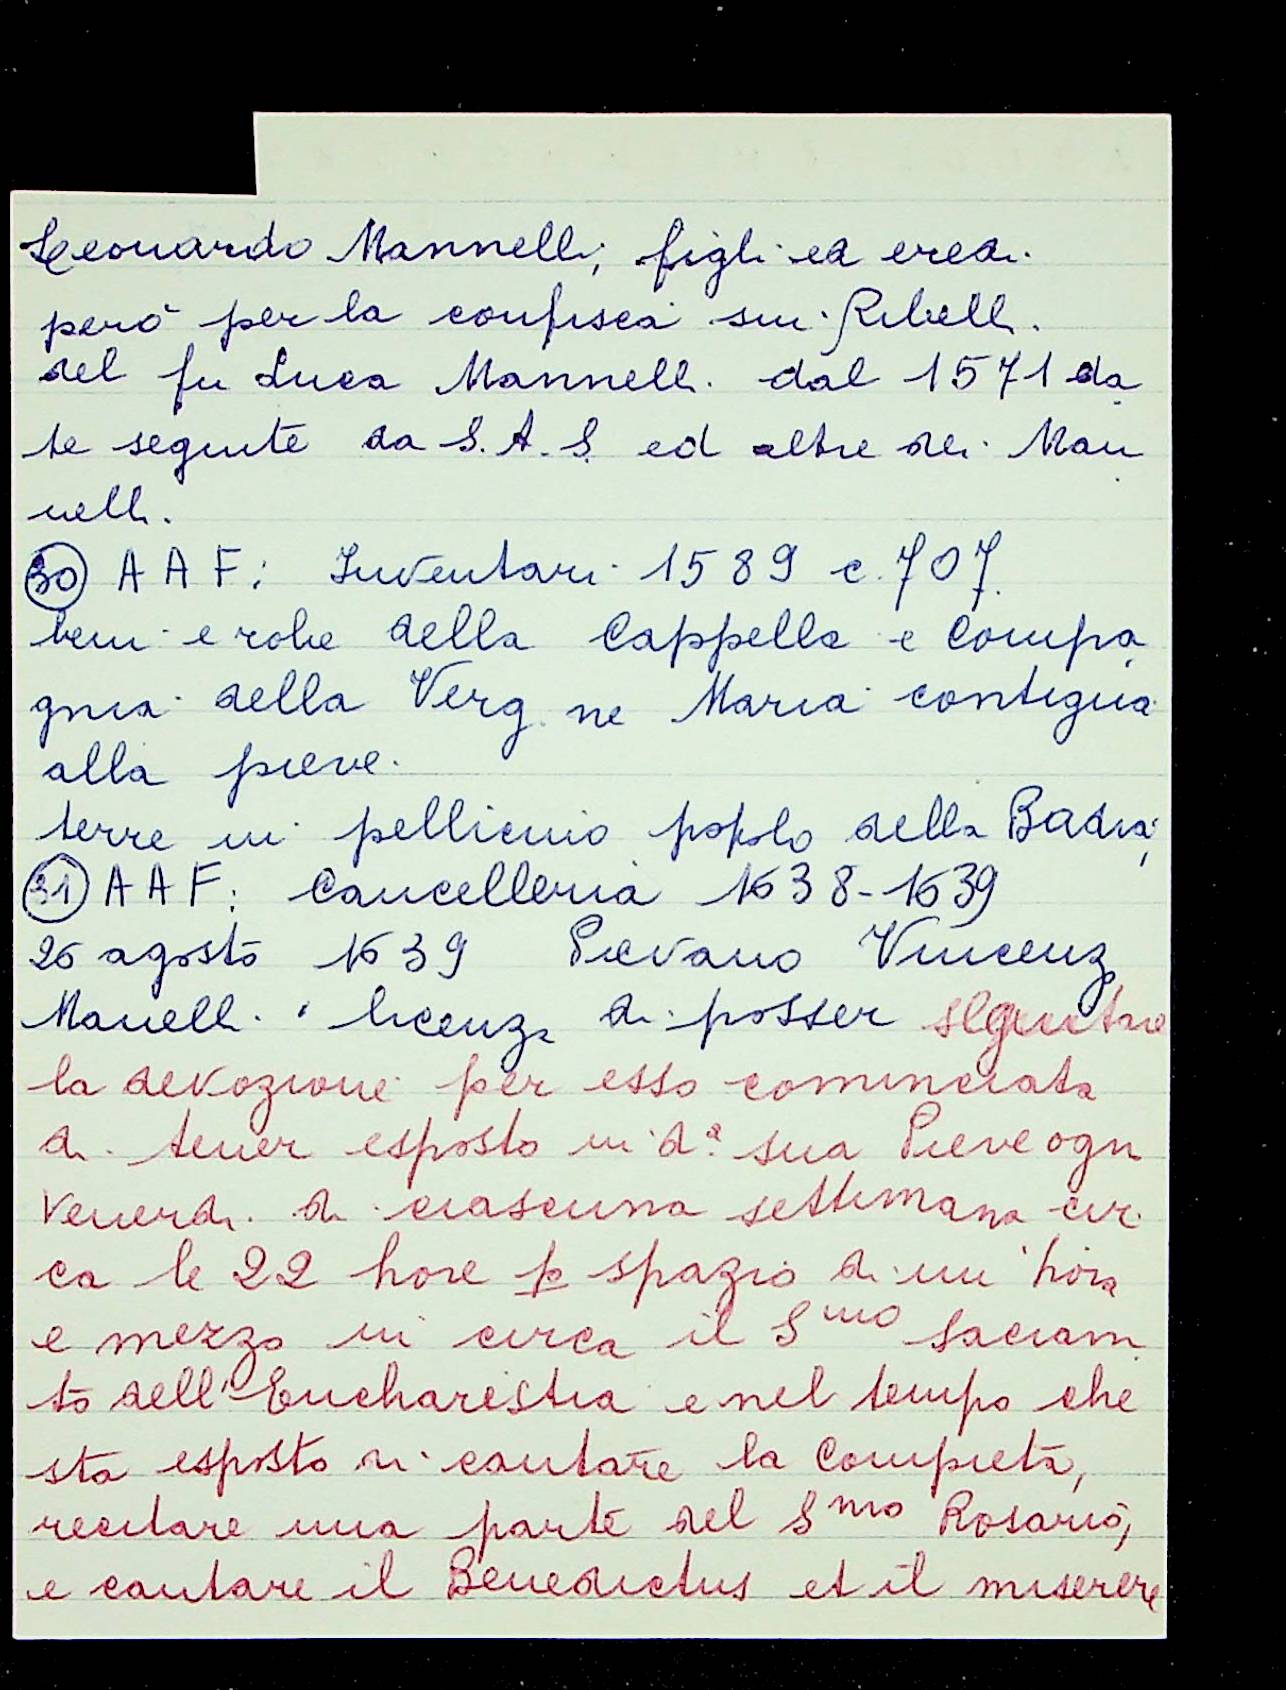 Leonardo Mannelli, figli ed eredi
però per la confisca sui Ribelli
del fu Luca Mannelli dal 1571 da
te seguite da S.A.S. ed altre dei Man
nelli.
30 A A F: Inventari 1589 c. 707.
beni e robe della Cappella e Compa
gnia della Verg.ne Maria contigua
alla pieve.
terre in pellicino popolo della Badia,
31 A A F: Cancelleria 1638-1639
26 agosto 1639 Pievano Vincenz
Manelli licenza di posser seguitare
la devozione per esso cominciata
di tener esposto in d.a sua Pieve ogni
Venerdi di ciascuna settimana cir
ca le 22 hore p spazio di un hora
e mezzo in circa il Smo Sacram
to dell'Eucharistia e nel tempo che
sta esposto si cantare la Compieta,
recitare una parte del Smo Rosario,
e cantare il Benedictus et il miserere